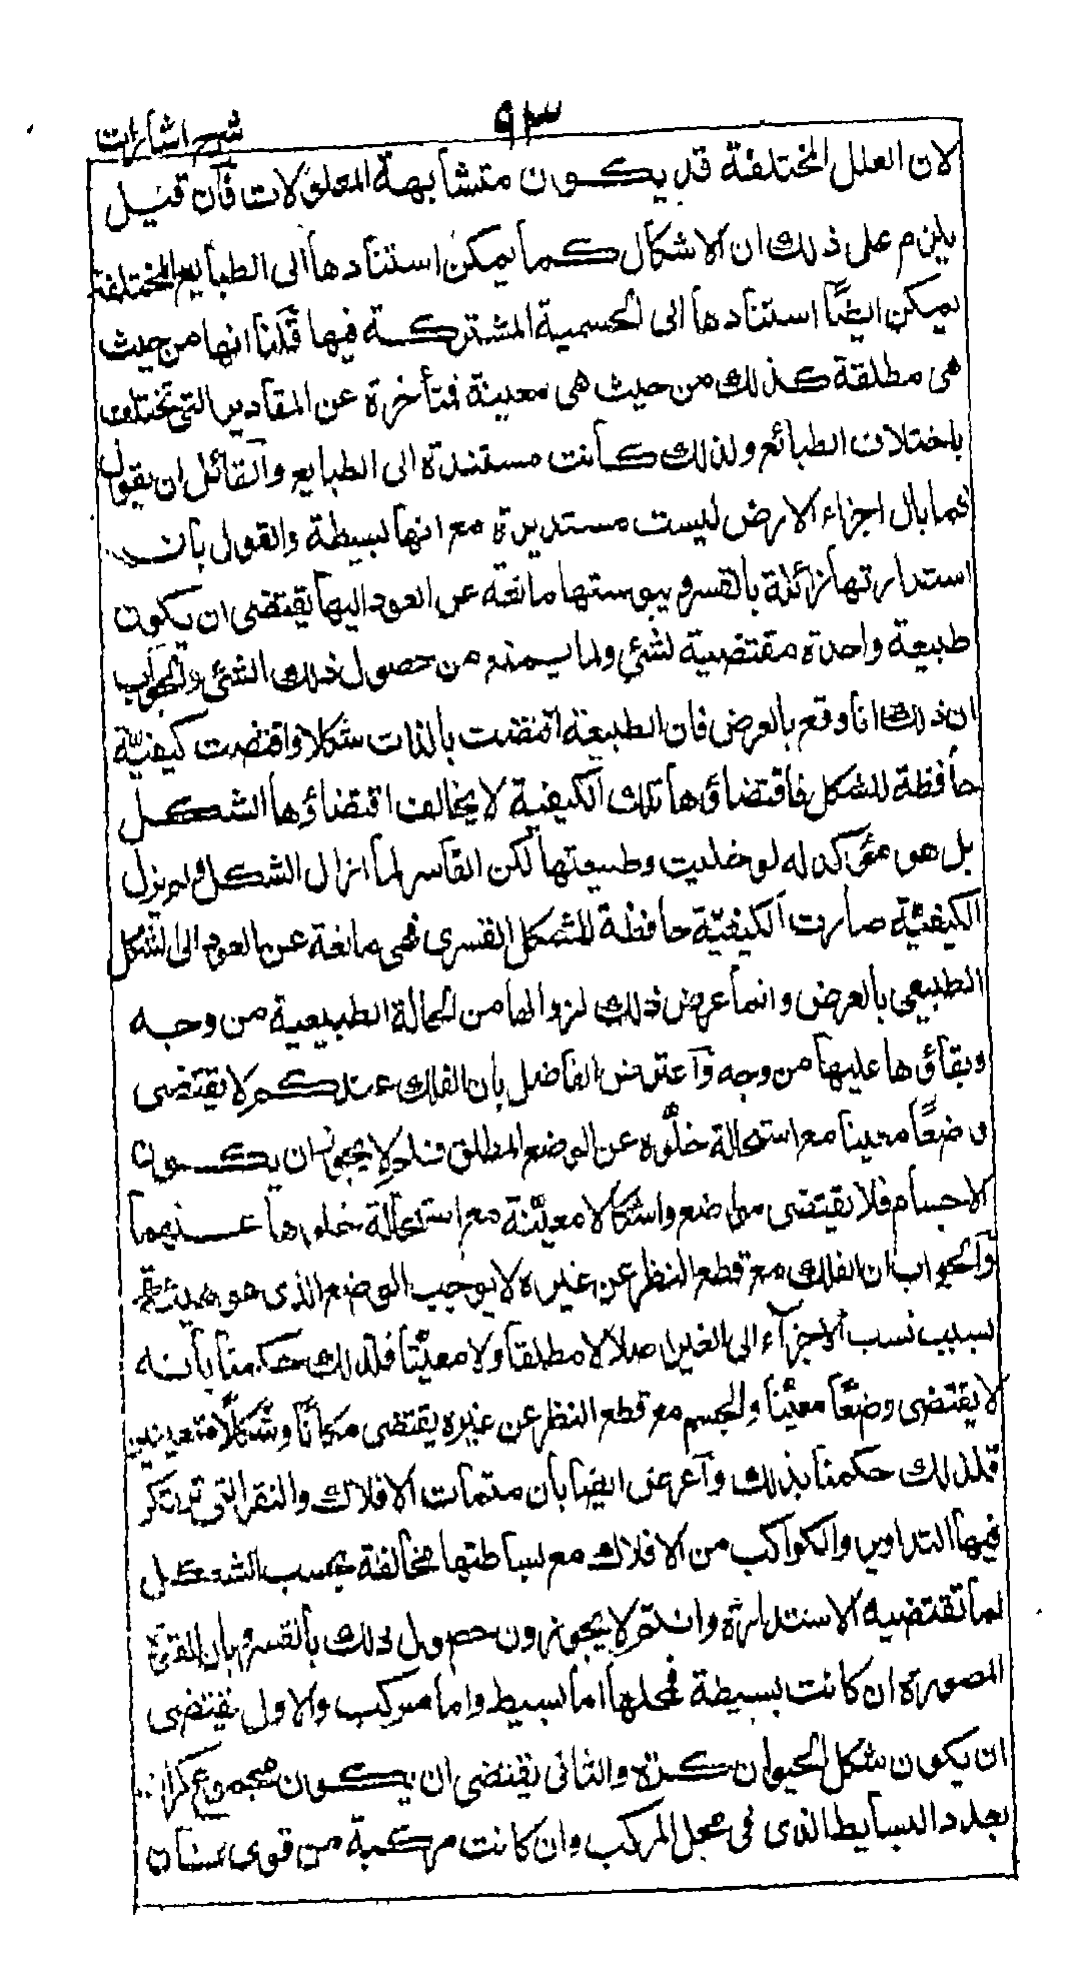 ٩٣
شرح اشارات
لان العلل المختلفة قد يكون متشابهة المعلولات فان قيل
يلزم على ذلك ان الاشكال كما يمكن استنادها الى الطبايع المختلفة
يمكن ايضًا استنادها الى الجسمية المشتركة فيها قلنا انها من حيث
هى مطلقة كذلك من حيث هى معينة فمتأخرة عن المقادير التى تختلف
باختلاف الطبائع ولذلك كانت مستندة الى الطبايع ولقائل ان يقول
فما بال اجزاء الارض ليست مستديرة مع انها بسيطة والقول بان
استدارتها زائلة بالقسر ويبوستها مانعة عن العود اليها يقتضى ان يكون
طبيعة واحدة مقتضية لشئ ولما يمنع من حصول ذلك الشئ والجواب
ان ذلك انما وقع بالعرض فان الطبيعة اقتضت بالذات شكلا واقتضت كيفيّة
حافظة للشكل فاقتضاؤها تلك الكيفية لا يخالف اقتضاؤها الشكل
بل هو مؤكد له لو خليت وطبيعتها لكن القاسر لما ازال الشكل ولم يزل
الكيفيّة صارت الكيفيّة حافظة للشكل القسرى فهى مانعة عن العود الى الشكل
الطبيعى بالعرض وانما عرض ذلك لزوالها من الحالة الطبيعية من وجه
وبقاؤها عليها من وجه واعترض الفاضل بان الفلك عندكم لا يقتضى
وضعًا معينا مع استحالة خلوّه عن الوضع المطلق فلم لا يجوز ان يكون
الاجسام فلا يقتضى مواضع واشكالا معيّنة مع استحالة خلوها عنهما
والجواب ان الفلك مع قطع النظر عن غيره لا يوجب الوضع الذى هو هيئة
بسبب نسب الاجزآء الى الغير اصلا لا مطلقا ولا معيّنا فلذلك حكمنا بانه
لا يقتضى وضعًا معيّنا والجسم مع قطع النظر عن غيره يقتضى مكانًا وشكلًا متعينين
فلذلك حكمنا بذلك واعرض ايضا بان متممات الافلاك والنقر التى ترتكز
فيها التداوير والكواكب من الافلاك مع بساطتها مخالفة بحسب الشكل
لما تقتضيه الاستدارة وانتم لا تجوزون حصول ذلك بالقسر وبان القوة
المصورة ان كانت بسيطة فمحلها اما بسيط واما مركب والاول يقتضى
ان يكون شكل الحيوان كرة والثانى يقتضى ان يكون مجموع كرات
بعدد البسايط الذى فى محل المركب وان كانت مركبة من قوى